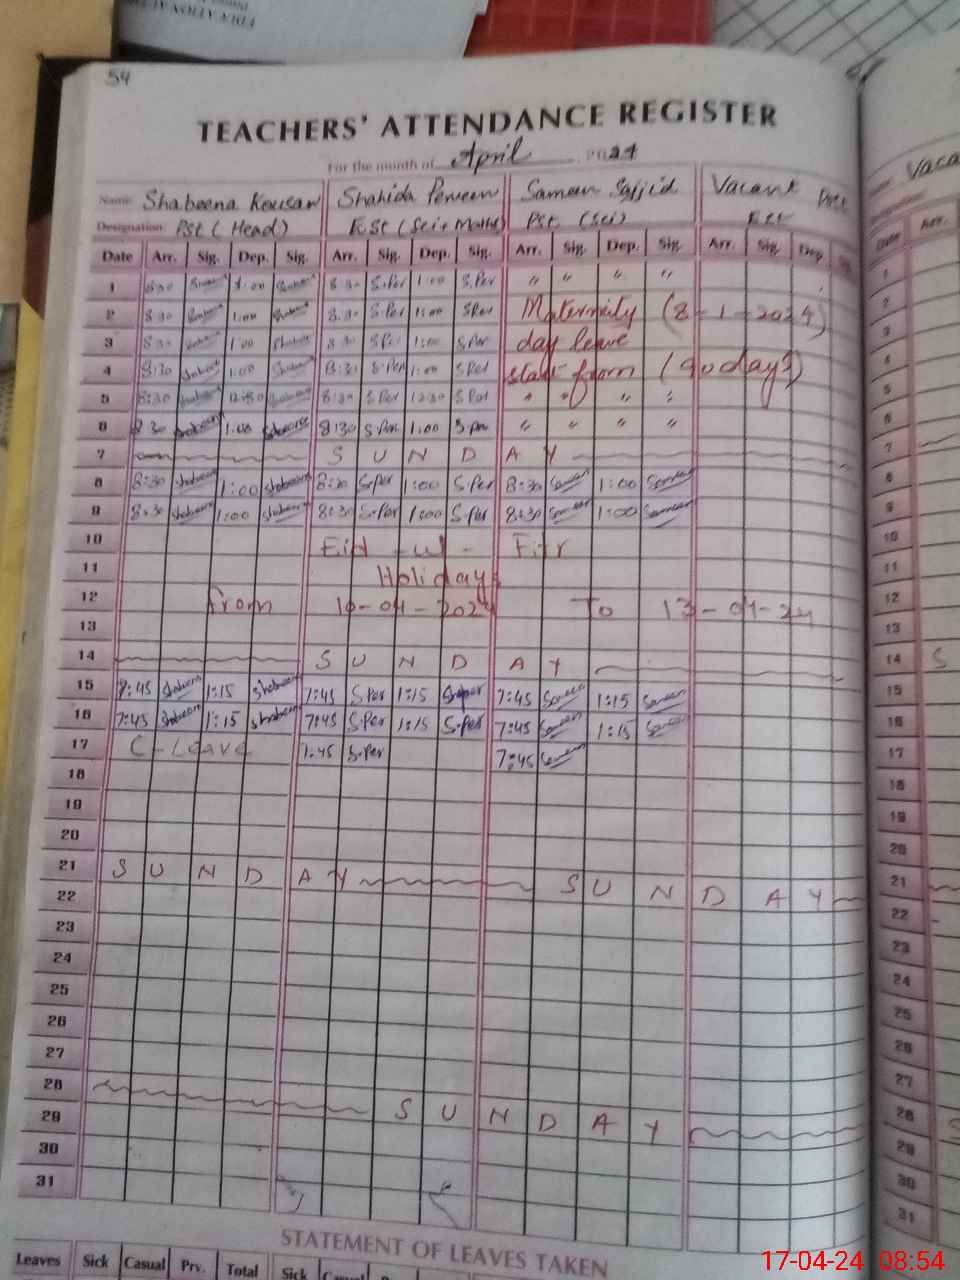 54
TEACHERS' ATTENDANCE REGISTER
For the month of April 2024
Name: Shabeena Kousar Shahida Perveen Sameen Sajjid Vacant
Designation: Pst (Head) ESt (Sci+Maths) Pst (Sci) Est
Date Arr. Sig. Dep. Sig. Arr. Sig. Dep. Sig. Arr. Sig. Dep. Sig. Arr. Sig. Dep.
1 8:30 1:00 8:30 S.Per 1:00 S.Per " " " "
2 8:30 1:00 8:30 S.Per 1:00 S.Per Maternity (8-1-2024)
3 8:30 1:00 8:30 S.Per 1:00 S.Per day leave
4 8:30 Shabeen 1:00 8:30 S.Per 1:00 S.Per start from (90 days)
5 8:30 12:30 8:30 S.Per 12:30 S.Per " " " "
6 8:30 Shabeen 1:00 Shabeena 8:30 S.Per 1:00 S.Per " " " "
7 S U N D A Y
8 8:30 Shabeen 1:00 Shabeen 8:30 S.Per 1:00 S.Per 8:30 Sameen 1:00 Sameen
9 8:30 Shabeen 1:00 Shabeen 8:30 S.Per 1:00 S.Per 8:30 Sameen 1:00 Sameen
10 Eid - ul - Fitr
11 Holidays
12 from 10-04-2024 To 13-04-24
13
14 S U N D A Y
15 7:45 Shabeen 1:15 Shabeen 7:45 S.Per 1:15 S.per 7:45 Sameen 1:15 Sameen
16 7:45 Shabeen 1:15 Shabeen 7:45 S.Per 1:15 S.Per 7:45 Sameen 1:15 Sameen
17 C-Leave 7:45 S.Per 7:45 Sameen
18
19
20
21 S U N D A Y S U N D A Y
22
23
24
25
26
27
28 S U N D A Y
29
30
31
STATEMENT OF LEAVES TAKEN
Leaves Sick Casual Prv. Total Sick
Vaca
Date Arr.
1
2
3
4
5
6
7
8
9
10
11
12
13
14 S
15
16
17
18
19
20
21
22
23
24
25
26
27
28 S
29
30
31
17-04-24 08:54